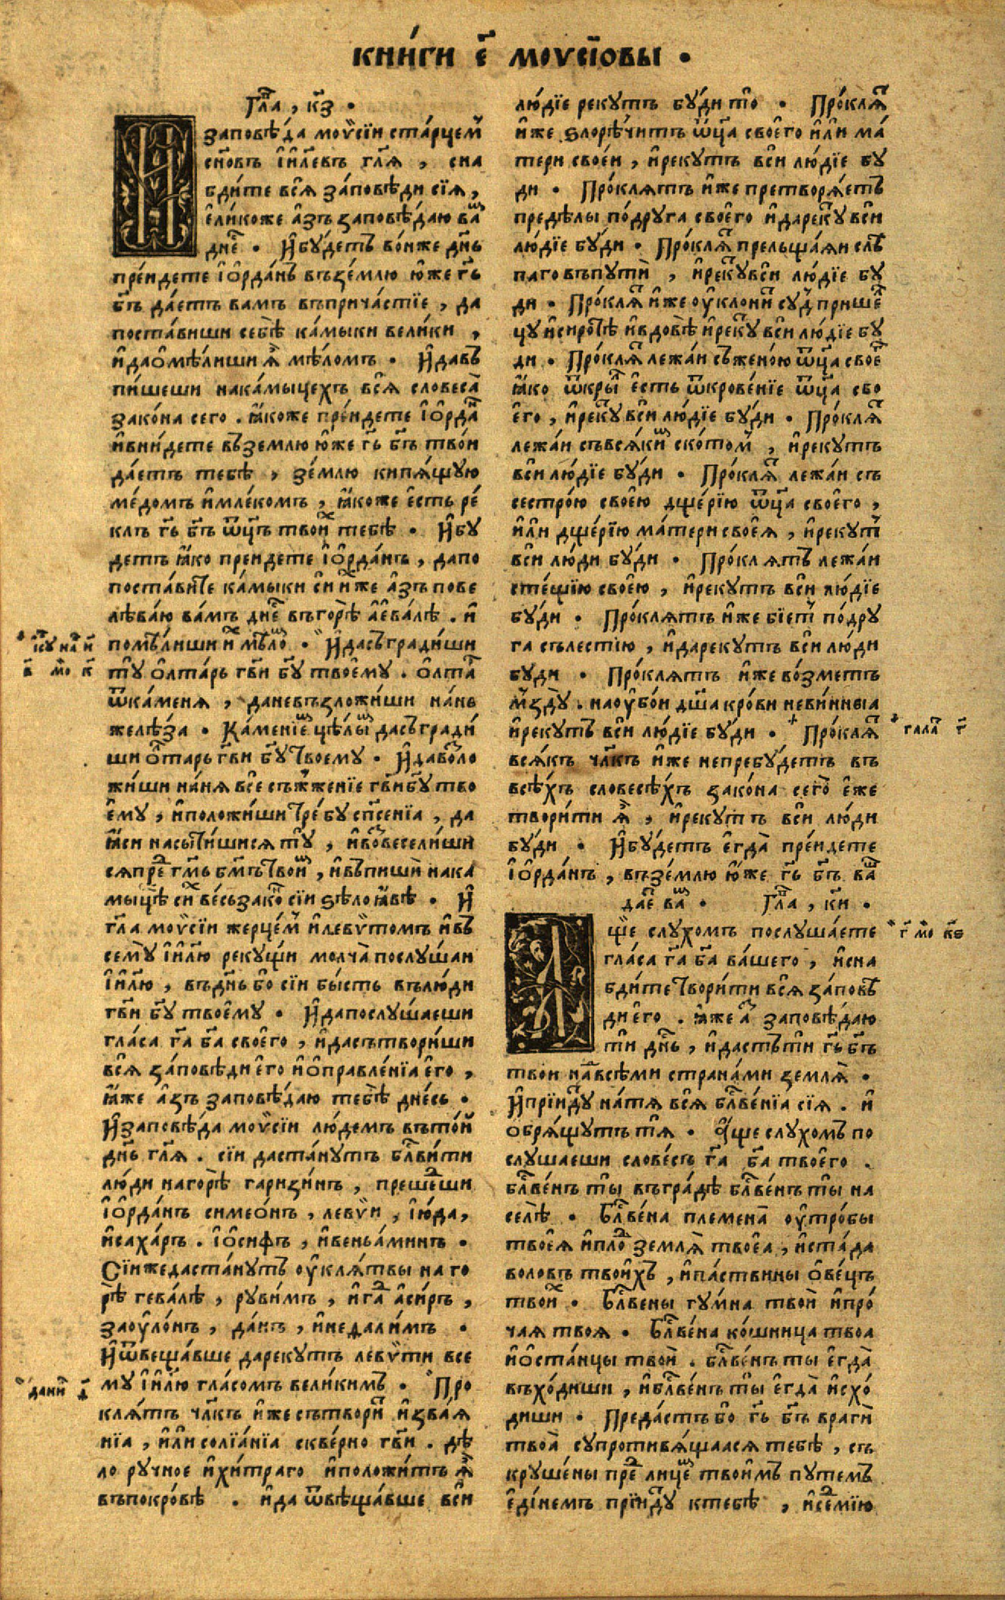 кни́ги є҃ моѵсїѡвы •
Гл҃а , к҃з •
И заповѣ́да моѵ̈сїи ста́рцемъ
сн҃овъ і҆и҃левъ гл҃ѧ , сна
бди́те всѧ̀ за́повѣди сїѧ̀ ,
е҆ли́коже а҆́зъ заповѣ́даю ва́
дне́ • И҆бу́детъ во́ньже дн҃ь
пре́идете і҆ѻ҆рда́нъ въ зе́млю ю҆́же гь҃
бг҃ъ дае́тъ вамъ въприча́стїе , да
поста́виши себѣ̀ ка́мыки вели́ки ,
и҆даѻ҆мѣ́лиши ѧ҆̀ мѣ́ломъ • И҆давъ
пи́шеши нака́мыцехъ всѧ̀ словеса̀
зако́на сего . ꙗ҆́коже пре́идете і҆ѻ҆рда́
и҆вни́идете въ землю ю҆́же гь҃ бг҃ъ тво́и
дае́тъ тебѣ̀ , зе́млю кипѧ́щую
ме́домъ и҆мле́комъ , ꙗ҆́коже е҆́сть ре́
клъ гь҃ бг҃ъ ѿц҃ъ твои тебѣ̀ • И҆бу
детъ ꙗ҆́ко преидете і҆ѻ҆рда́нъ , дапо
поста́вите ка́мыки си иже а҆́зъ пове
лѣва́ю вамъ дне́ въгорѣ̀ а҆ева́лѣ . и҆
помѣ́лиши и҆ мѣло • И҆дасъгради́ши
ту ѻ҆лта́рь гв҃и бг҃у твоемꙋ . ѻ҆лта́
ѿка́менѧ , даневъзложи́ши на́нь
желѣ́за • Ка́менїе цѣ́лы дасъгради
ши ѻ҆тарь гв҃и бг҃у твоему • И҆даво́ло
жи́ши на́нѧ все съжже́нїе гв҃и бг҃у тво
е҆му̀ , и҆положи́ши тре́бу сп҃се́нїа , да
ꙗ҆́си насы́тишисѧ ту , и҆во́веселиши
сѧпре́ гм҃ъ бг҃мъ твои , и҆въпишѝ нака
мыцѣ̀ си весьзако́ сїи ѕѣло ꙗ҆́вѣ • И҆
гл҃а моѵ̈сїи жерце́мъ и҆леѵи̑томъ и҆въ
сему̀ і҆и҃лю реку́щи молча̀ послу́шаи
і҆и҃лю , въдн҃ь бо сїи бы́сть въ лю́ди
гв҃и бг҃у твоему • И҆дапослу́шаеши
гла́са га҃ ба҃ своего , и҆дасътвори́ши
всѧ̀ за́повѣди е҆го и҆ѻ҆правле́нїа е҆го ,
ꙗ҆́же а҆́зъ заповѣ́даю тебѣ̀ дне́сь •
И҆заповѣ́да моѵсїи лю́демъ въто́и
дн҃ь гл҃ѧ . сїи даста́нутъ бл҃ви́ти
лю́ди нагорѣ̀ гаризи́нъ , преше́ши
і҆ѻ҆рда́нъ симео́нъ , леѵ̈и , і҆ю́да ,
и҆саха́ръ . і҆ѻ҆сифъ , и҆венья́минъ •
Сїи́жедаста́нутъ ѹ҆клѧ́твы на го
рѣ̀ гева́лѣ , руви́мъ , и҆га́ а҆си́ръ ,
заѹло́нъ , да́нъ , и҆недалимъ •
И҆ѿвеща́вше дарекутъ левѵ́ти все
му̀ і҆и҃лю гла́сомъ вели́кимъ • Про
клѧтъ чл҃къ и҆́же сътвори и҆зва́ѧ
нїа , и҆́ли солїа́нїа скве́рно гв҃и . дѣ́
ло ручное и҆хи́траго и҆положи́тъ ѧ҆̀
въпокро́вѣ . и҆да ѿвѣща́вше вси
лю́дїе рекутъ бу́ди то • Про́клѧ
и҆́же ѕлорѣ́читъ ѿц҃а своего и҆ли ма́
тери свое́и , и҆рекутъ вси лю́дїе бу
ди • Про́клѧтъ и҆́же претворѧ́етъ
предѣ́лы по́друга своего и҆дареку вси
лю́дїе бу́ди • Про́клѧ прельща́ѧи слѣ
паго въпутѝ , и҆реку вси лю́дїе бу
ди • Про́клѧ и҆́же ѹ҆клони су прише
цу и҆сиротѣ̀ и҆вдовѣ̀ и҆реку вси лю́дїе бу
ди • Про́клѧ лежа́и съжено́ю ѿц҃а свое
ꙗ҆́ко ѿкры е҆́сть ѿкрове́нїе ѿц҃а сво
е҆го , и҆реку вси лю́дїе бу́ди • Про́клѧ
лежа́и съвсѧ́ки ско́томъ , и҆рекутъ
вси лю́дїе бу́ди • Про́клѧ лежа́и съ
сестро́ю свое́ю дще́рїю ѿц҃а своего ,
и҆ли дще́рїю ма́тери своеѧ , и҆рекут
вси лю́ди бу́ди • Про́клѧтъ лежа́и
стещїю свое́ю , и҆рекутъ вси лю́дїе
бу́ди • Про́клѧтъ и҆́же бїет по́дру
га съле́стїю , и҆дарекутъ вси лю́ди
бу́ди • Про́клѧтъ и҆́же во́зметъ
мъзду̀ . наѹ҆бо́и дш҃а кро́ви неви́нныа
и҆рекутъ вси лю́дїе бу́ди • Про́клѧ
всѧ́къ чл҃къ и҆́же непребу́детъ въ
всѣ́хъ словесѣ́хъ зако́на сего̀ е҆́же
твори́ти ѧ҆̀ , и҆рекутъ вси лю́ди
бу́ди • И҆бу́детъ е҆гда̀ пре́идете
і҆ѻ҆рда́нъ , въ зе́млю ю҆́же гь҃ бг҃ъ ва
дае ва • Гл҃а , к҃и •
А ще слухомъ послу́шаете
гла́са га҃ ба҃ ва́шего , и҆сна
бди́те твори́ти всѧ̀ за́повѣ
ди е҆го . ꙗ҆́же а҆ заповѣ́даю
ти дн҃ь , и҆дастъ ти гь҃ бг҃ъ
твои на всѣми страна́ми землѧ̀ •
И҆прїи́ду на́тѧ всѧ̀ бл҃ве́нїа сїѧ . и҆
ѻ҆брѧ́щутъ тѧ • А҆́ще слухомъ по
слу́шаеши слове́съ га҃ ба҃ твоего .
бл҃ве́нъ ты въгра́дѣ бл҃ве́нъ ты на
селѣ̀ • Бл҃ве́на племена̀ ѹ҆тро́бы
твоеѧ и҆пло землѧ̀ твоеа , и҆ста́да
воловъ твои́хъ , и҆па́ствины ѻ҆ве́цъ
твои • Бл҃ве́ны гу́мна твоѝ и҆про́
чаѧ твоѧ • Бл҃ве́на ко́шница твоа
и҆ѻ҆ста́нцы твоѝ . бл҃ве́нъ ты е҆гда̀
въхо́диши , и҆бл҃ве́нъ ты е҆гда̀ и҆схо́
диши • Преда́стъ бо гь҃ бг҃ъ врагѝ
твоа̀ супроти́вѧщаасѧ тебѣ̀ , съ
круше́ны пре лице твои́мъ путе́мъ
е҆ди́немъ прїи́ду ктебѣ̀ , и҆се́мїю